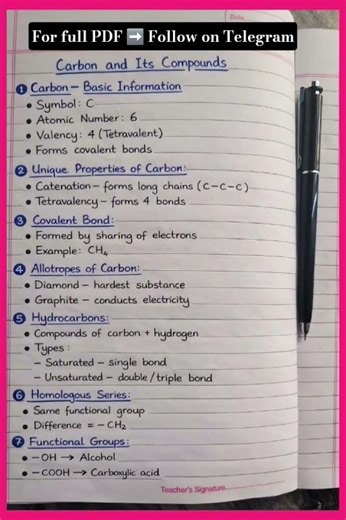 Date.
For full PDF ➡ Follow on Telegram
Carbon and Its Compounds
1 Carbon – Basic Information
• Symbol: C
• Atomic Number: 6
• Valency: 4 (Tetravalent)
• Forms covalent bonds
2 Unique Properties of Carbon:
• Catenation – forms long chains (C–C–C)
• Tetravalency – forms 4 bonds
3 Covalent Bond:
• Formed by sharing of electrons
• Example: CH₄
4 Allotropes of Carbon:
• Diamond – hardest substance
• Graphite – conducts electricity
5 Hydrocarbons:
• Compounds of carbon + hydrogen
• Types:
– Saturated – single bond
– Unsaturated – double/triple bond
6 Homologous Series:
• Same functional group
• Difference = –CH₂
7 Functional Groups:
• –OH → Alcohol
• –COOH → Carboxylic acid
Teacher's Signature